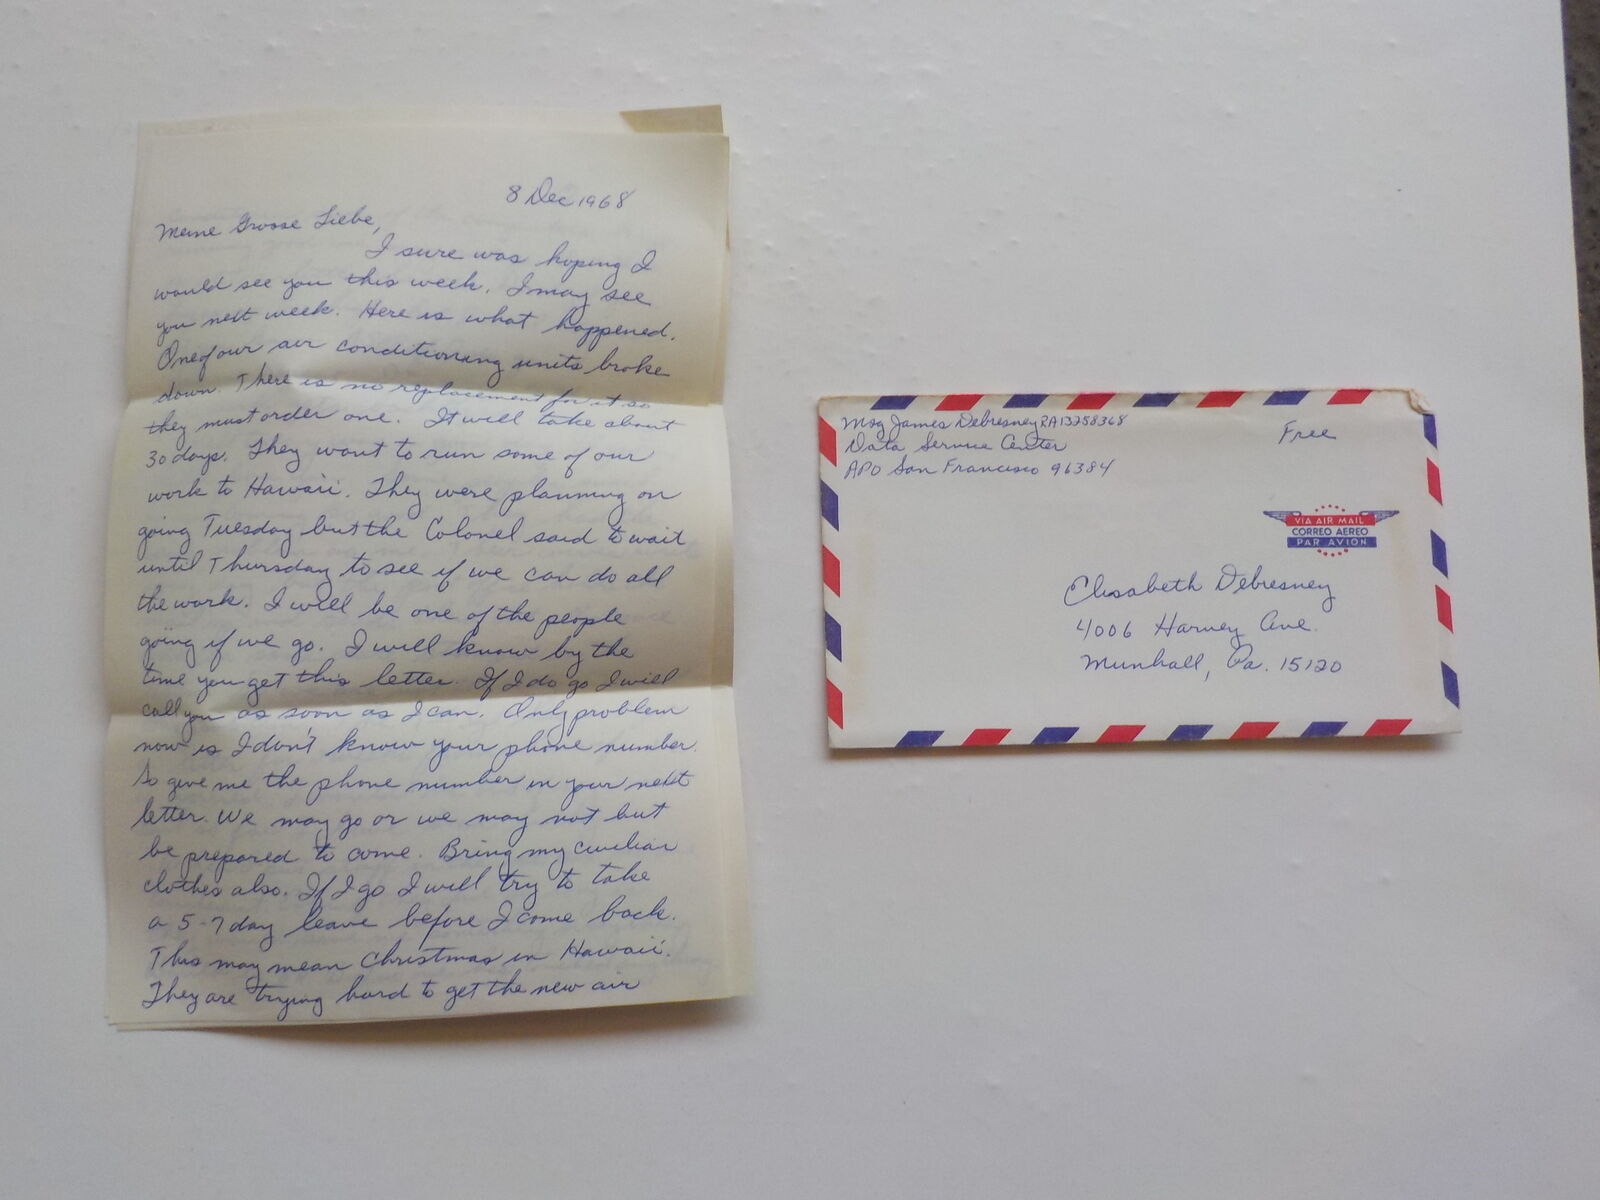 8 Dec 1968
Meine Grosse Liebe,
I sure was hoping I
would see you this week. I may see
you next week. Here is what happened.
One of our air conditioning units broke
down. There is no replacement for it so
they must order one. It will take about
30 days. They want to run some of our
work to Hawaii. They were planning on
going Tuesday but the Colonel said to wait
until Thursday to see if we can do all
the work. I will be one of the people
going if we go. I will know by the
time you get this letter. If I do go I will
call you as soon as I can. Only problem
now is I don't know your phone number.
So give me the phone number in your next
letter. We may go or we may not but
be prepared to come. Bring my civilian
clothes also. If I go I will try to take
a 5-7 day leave before I come back.
This may mean Christmas in Hawaii.
They are trying hard to get the new air
Msg James Debresney RA13258368
Data Service Center
APO San Francisco 96384
Free
VIA AIR MAIL
CORREO AEREO
PAR AVION
Elisabeth Debresney
4006 Harvey Ave.
Munhall, Pa. 15120